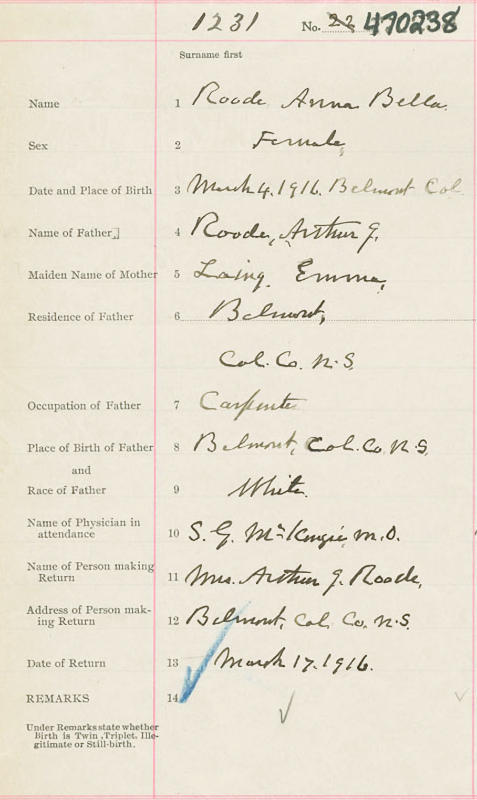 1231 No. 22 470238
Surname first
Name 1 Roode Anna Bella.
Sex 2 Female,
Date and Place of Birth 3 March 4. 1916. Belmont Col.
Name of Father 4 Roode, Arthur G.
Maiden Name of Mother 5 Laing. Emma,
Residence of Father 6 Belmont,
Col. Co. N.S.
Occupation of Father 7 Carpenter
Place of Birth of Father 8 Belmont, Col. Co. N.S.
and
Race of Father 9 White.
Name of Physician in
attendance 10 S. G. McKenzie, M.D.
Name of Person making
Return 11 Mrs. Arthur G. Roode,
Address of Person mak-
ing Return 12 Belmont, Col. Co. N.S.
Date of Return 13 March 17. 1916.
REMARKS 14
Under Remarks state whether
Birth is Twin, Triplet, Ille-
gitimate or Still-birth.